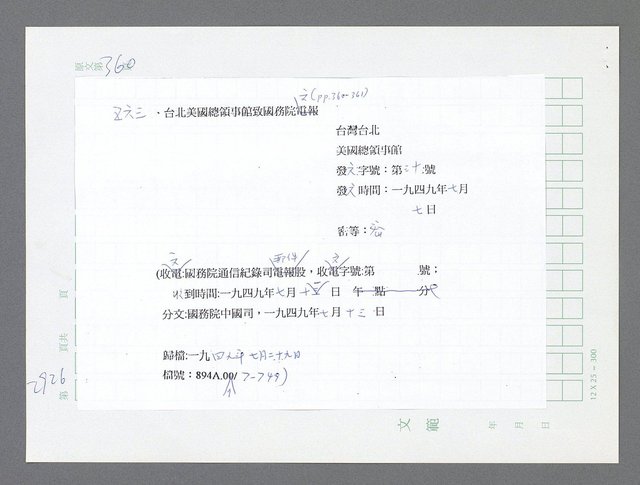 原文第 360
文(pp.360-361)
五六三、台北美國總領事館致國務院電報
台灣台北
美國總領事館
發文字號：第三十號
發文時間：一九四九年七月
七日
密等：密
文 郵件 文
(收電:國務院通信紀錄司電報股，收電字號:第 號；
收到時間:一九四九年七月十五日 午 點 分
分文:國務院中國司，一九四九年七月十三日
歸檔:一九四九年七月二十九日
檔號：894A.00/7-749)
頁
頁共
2926
第
文 範
年 月 日
12 X 25 = 300